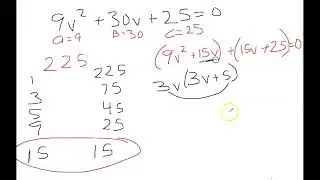 9v² + 30v + 25 = 0
a=9 B=30 C=25
225
(9v² + 15v) + (15v + 25) = 0
3v(3v + 5)
1 225
3 75
5 45
9 25
15 15